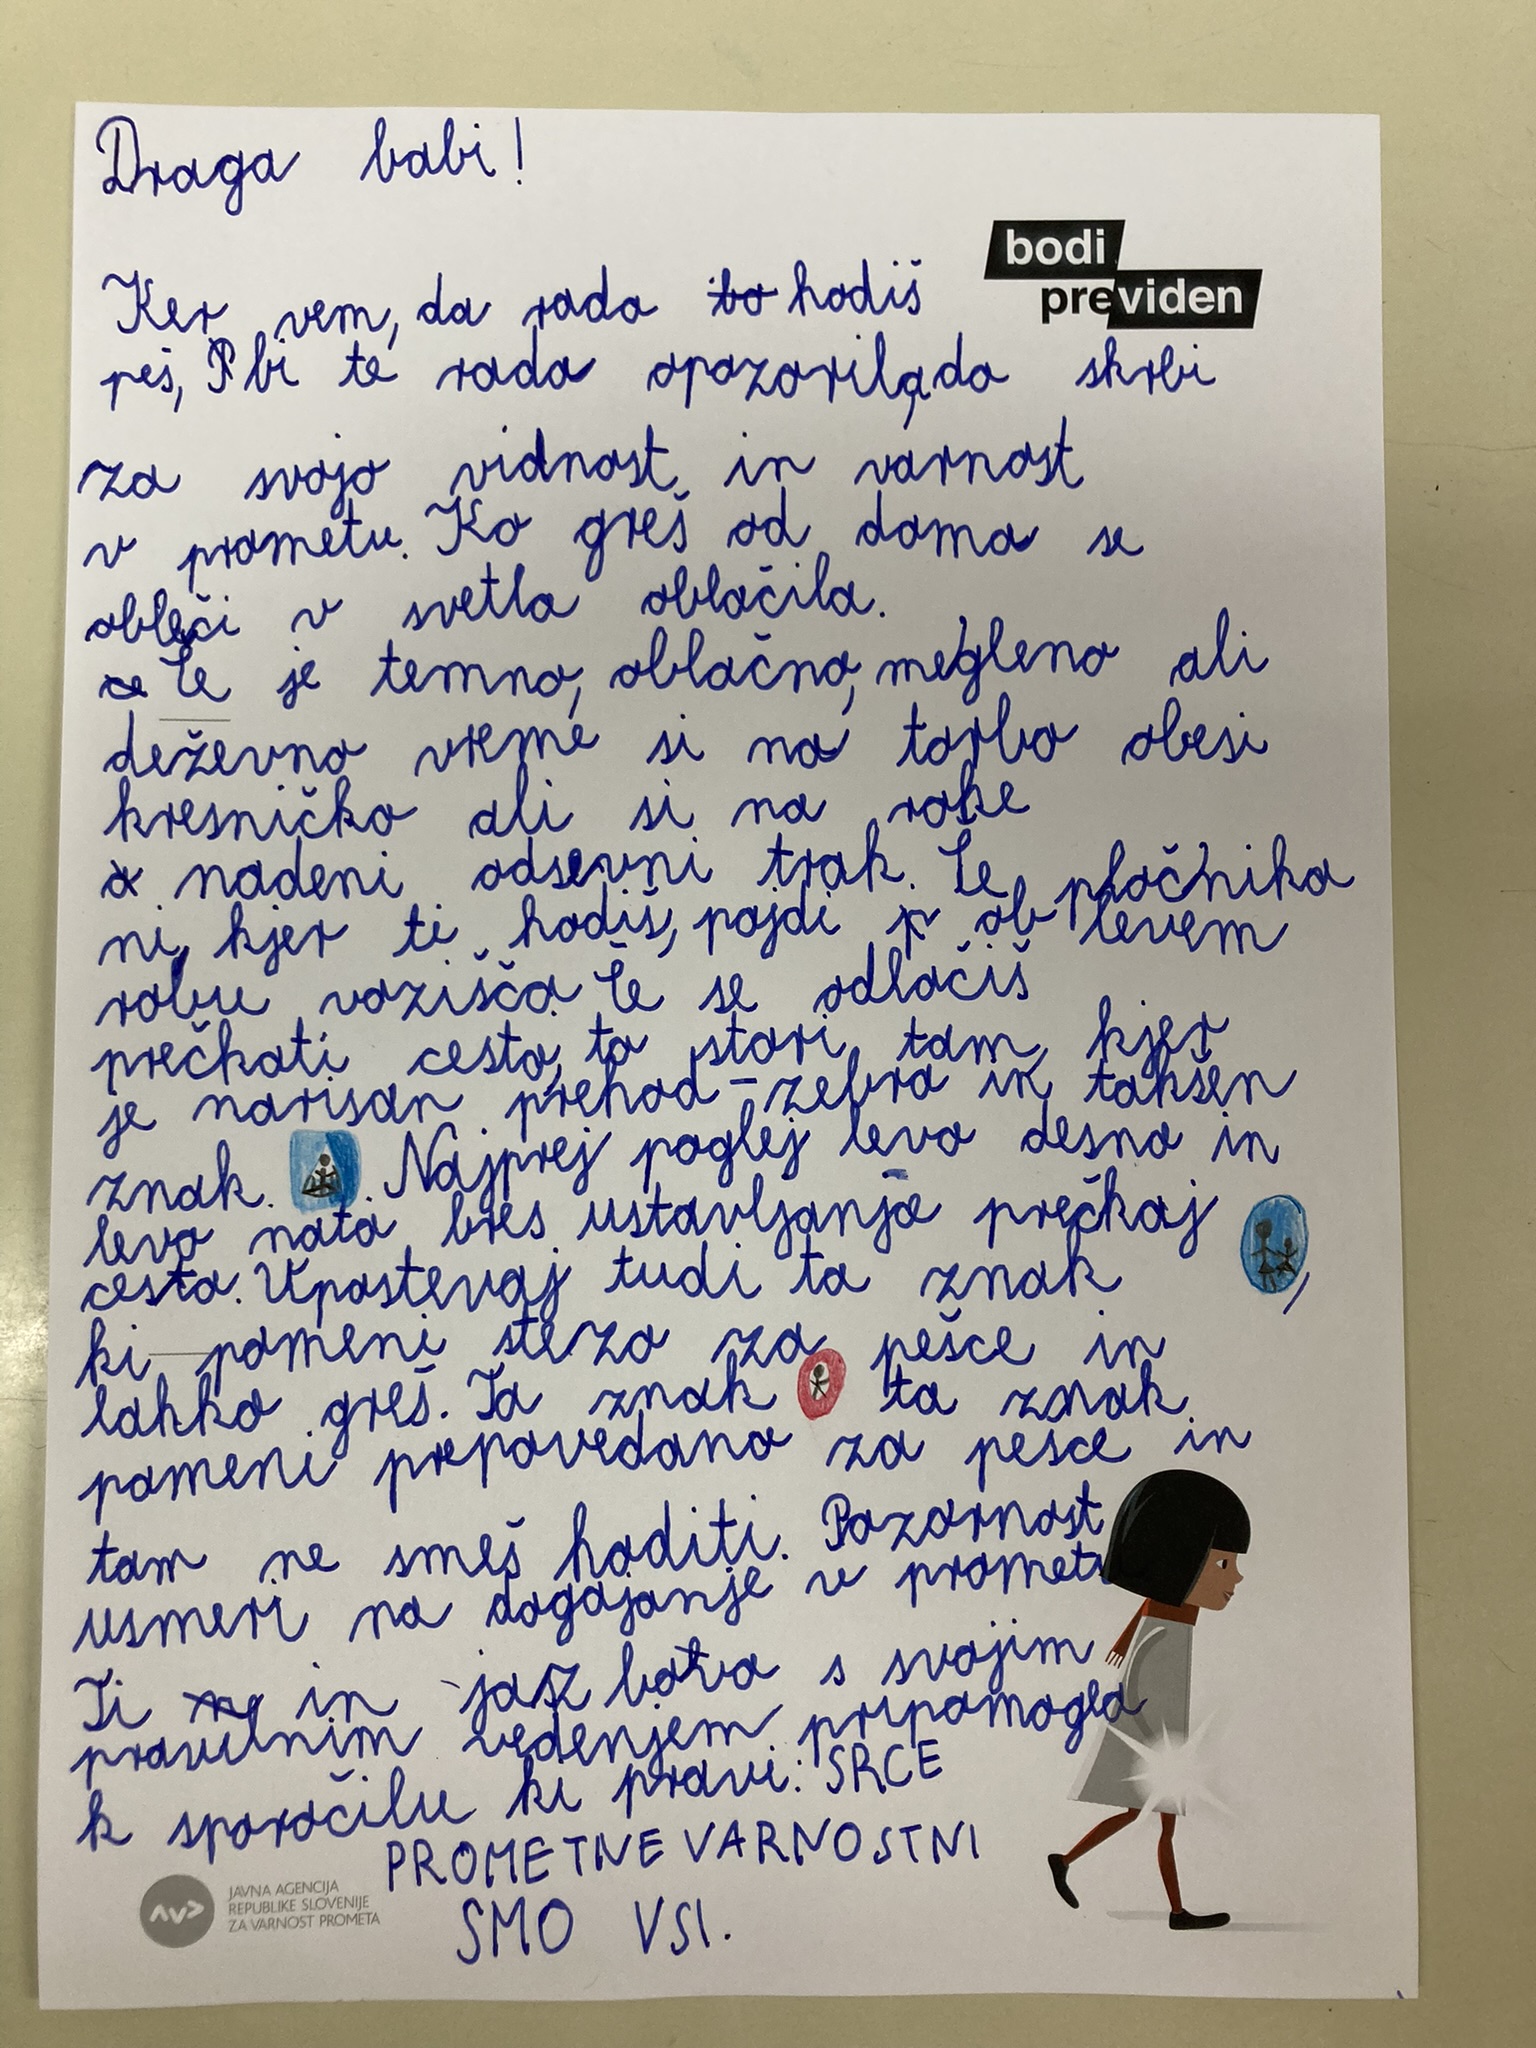 Draga babi!
bodi
previden
Ker vem, da rada hodiš
peš, bi te rada opozorila, da skrbi
za svojo vidnost in varnost
v prometu. Ko greš od doma se
obleči v svetla oblačila.
Če je temno, oblačno, megleno ali
deževno vreme si na torbo obesi
kresničko ali si na roke
nadeni odsevni trak. Če pločnika
ni, kjer ti hodiš, pojdi ob levem
robu vozišča. Če se odločiš
prečkati cesto, to stori tam, kjer
je narisan prehod - zebra in takšen
znak. . Najprej poglej levo desno in
levo nato bres ustavljanja prečkaj
cesto. Upostevaj tudi ta znak ,
ki pomeni steza za pešce in
lahko greš. Ta znak ta znak
pomeni prepovedano za pešce in
tam ne smeš hoditi. Pozornost
usmeri na dogajanje v prometu
Ti in jaz bova s svojim
pravilnim vedenjem pripomogla
k sporočilu ki pravi: SRCE
PROMETNE VARNOSTNI
SMO VSI.
JAVNA AGENCIJA
REPUBLIKE SLOVENIJE
ZA VARNOST PROMETA